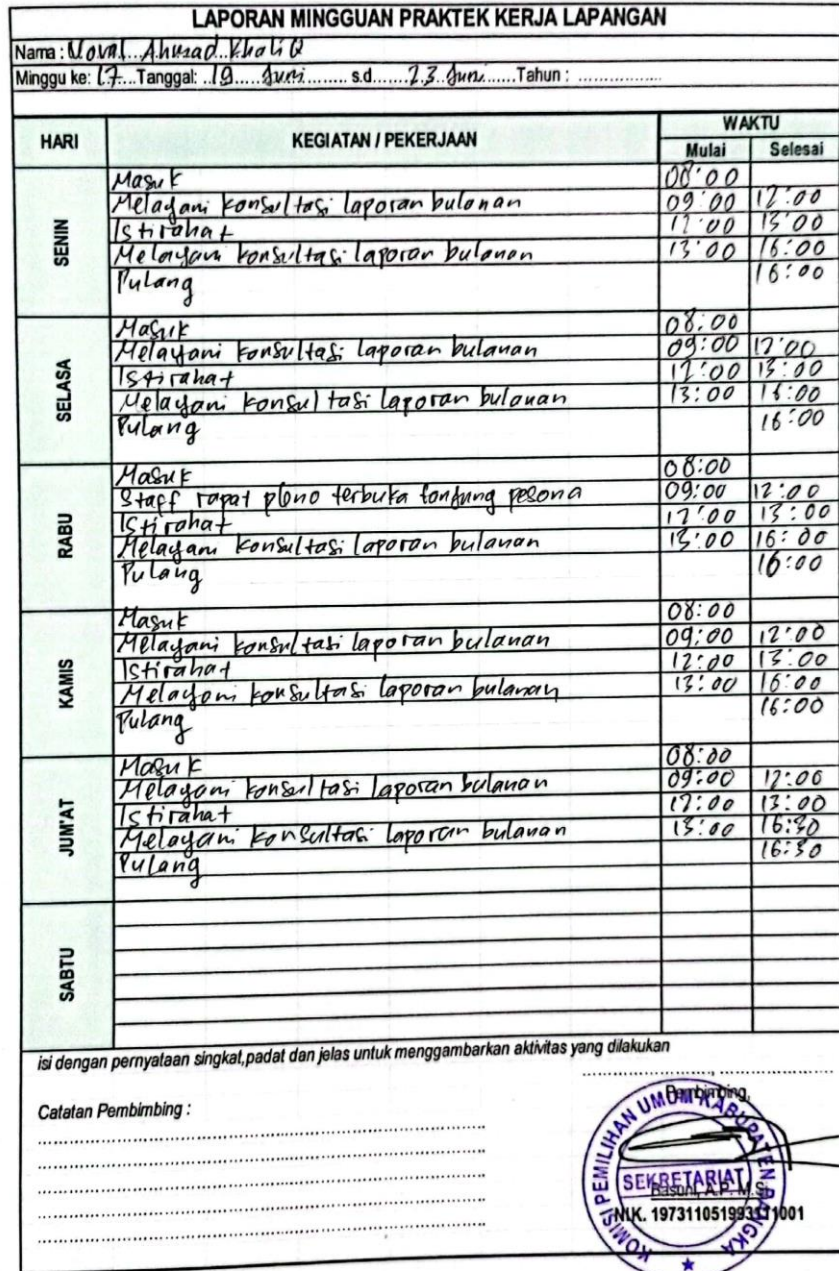 LAPORAN MINGGUAN PRAKTEK KERJA LAPANGAN
Nama : Noval Ahmad Khaliq
Minggu ke: 17 Tanggal: 19 Juni s.d. 23 Juni Tahun :
HARI KEGIATAN / PEKERJAAN WAKTU
Mulai Selesai
SENIN
Masuk 08:00
Melayani konsultasi laporan bulanan 09:00 12:00
Istirahat 12:00 13:00
Melayani konsultasi laporan bulanan 13:00 16:00
Pulang 16:00
SELASA
Masuk 08:00
Melayani konsultasi laporan bulanan 09:00 12:00
Istirahat 12:00 13:00
Melayani konsultasi laporan bulanan 13:00 16:00
Pulang 16:00
RABU
Masuk 08:00
Staff rapat pleno terbuka tanjung pesona 09:00 12:00
Istirahat 12:00 13:00
Melayani konsultasi laporan bulanan 13:00 16:00
Pulang 16:00
KAMIS
Masuk 08:00
Melayani konsultasi laporan bulanan 09:00 12:00
Istirahat 12:00 13:00
Melayani konsultasi laporan bulanan 13:00 16:00
Pulang 16:00
JUM'AT
Masuk 08:00
Melayani konsultasi laporan bulanan 09:00 12:00
Istirahat 12:00 13:00
Melayani konsultasi laporan bulanan 13:00 16:30
Pulang 16:30
SABTU
isi dengan pernyataan singkat,padat dan jelas untuk menggambarkan aktivitas yang dilakukan
Catatan Pembimbing :
Pembimbing,
KOMISI PEMILIHAN UMUM KABUPATEN BANGKA
SEKRETARIAT
Rasoni, A.P. M.Si
NIK. 197311051993111001